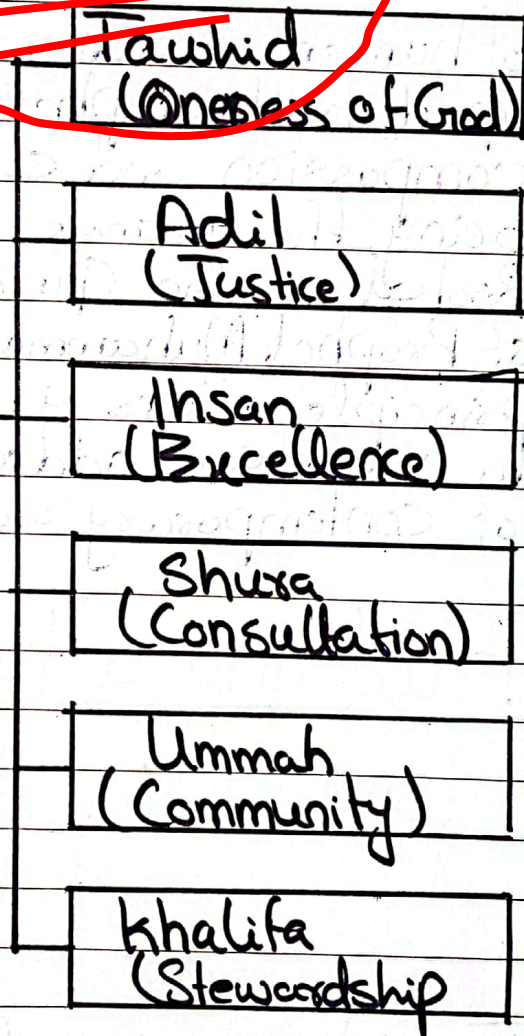 Tawhid
(Oneness of God)
Adil
(Justice)
Ihsan
(Excellence)
Shura
(Consultation)
Ummah
(Community)
Khalifa
(Stewardship